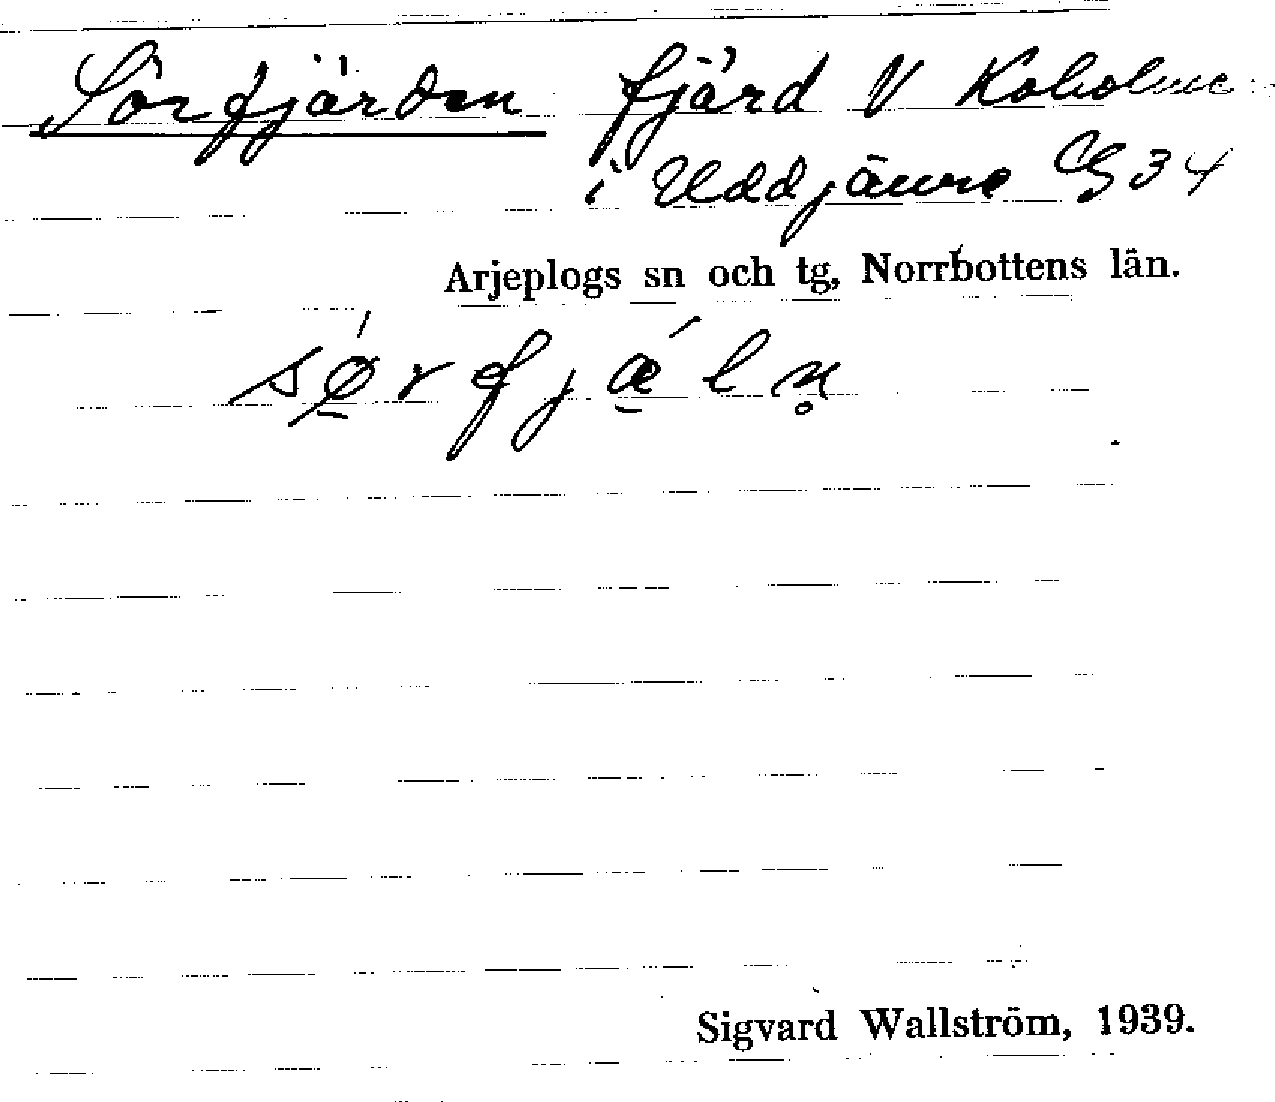 Sörfjärden fjärd V Koholme
i Uddjaure G 34
Arjeplogs sn och tg, Norrbottens län.
sǿ̱rfjǽ̱ln̥
Sigvard Wallström, 1939.